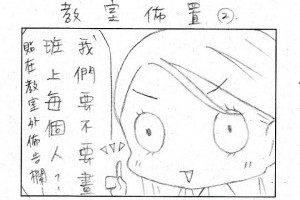 教室佈置②.
我們要不要畫
班上每個人?
貼在教室外佈告欄